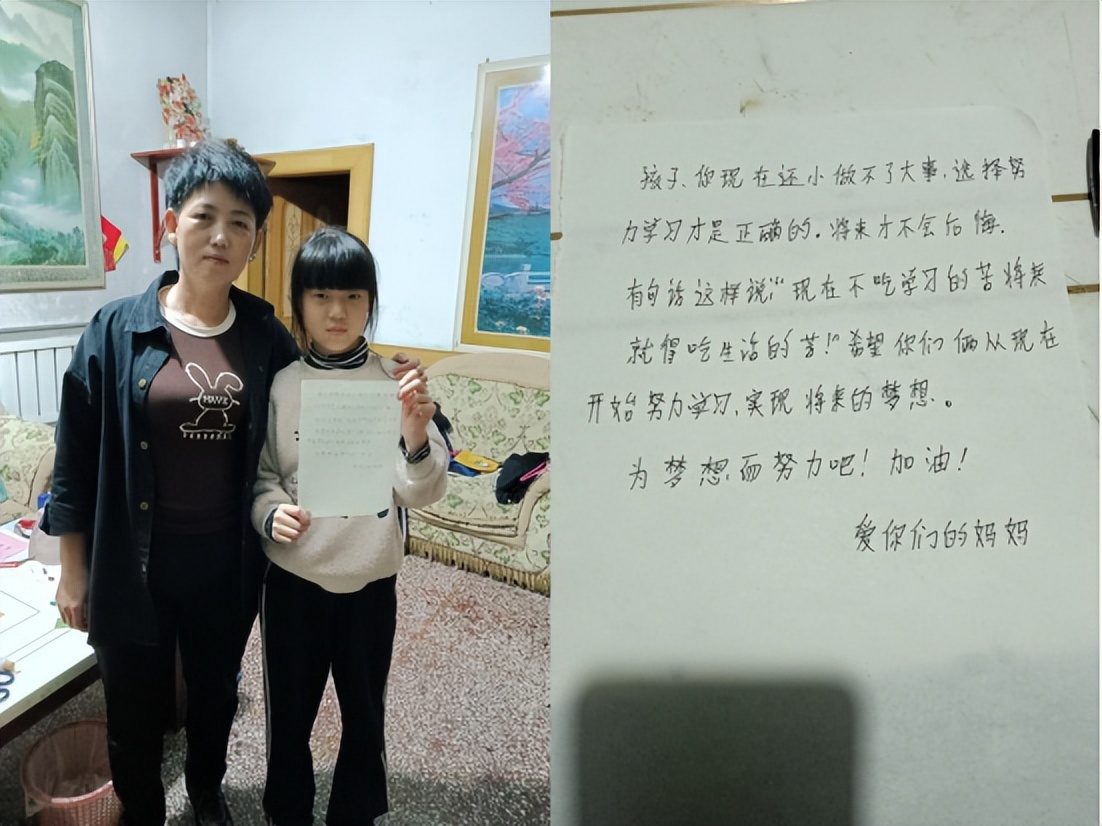 孩子、你现在还小做不了大事、选择努
力学习才是正确的。将来才不会后悔.
有句话这样说:"现在不吃学习的苦将来
就得吃生活的苦!"希望你们俩从现在
开始努力学习、实现将来的梦想。
为梦想而努力吧!加油!
爱你们的妈妈